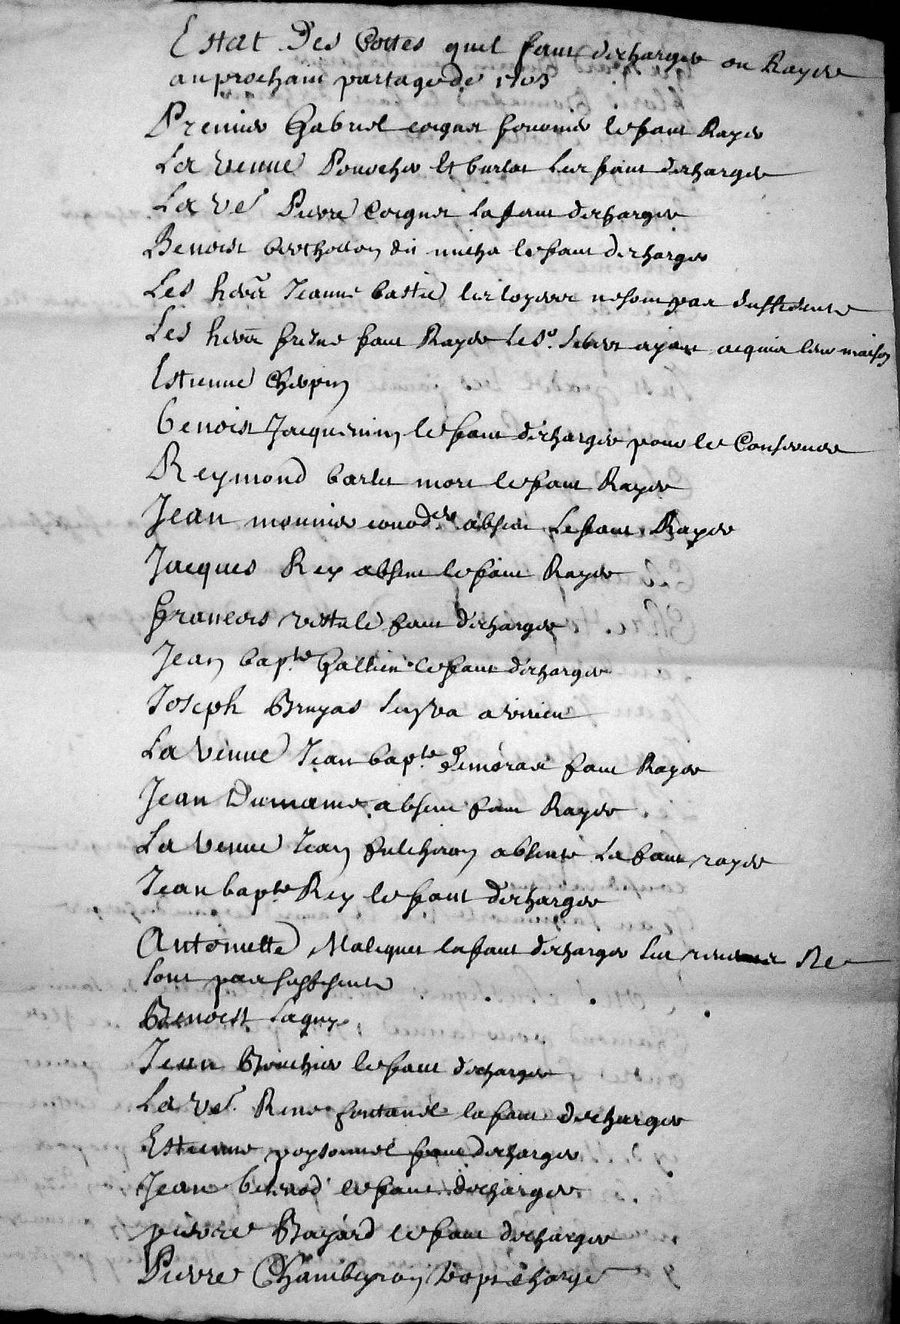 Estat Des Cottes quil faut descharger ou Rayer
au prochain partage de 1703
Premier Gabriel coignet le faut Rayer
La veuve et burlat les faut descharger
La ve Pierre Coignet la faut descharger
Benoist berthollon dit micha le faut descharger
Les her Jeanne bastie les loyers ne sont pas suffisents
Les her faut Rayer le Sr ayant acquis leur maison
Estienne Chepin
benoist Jacquemin le faut descharger pour le
Reymond barlet mort le faut Rayer
Jean monnier absent Le faut Rayer
Jacques Rey absent le faut Rayer
francois faut descharger
Jean bapte Gallien le faut descharger
Joseph Bruyas sen va a virieu
La veuve Jean bapte faut Rayer
Jean Dumaine absent faut Rayer
La veuve Jean fulchiron absente La faut rayer
Jean bapte Rey le faut descharger
Antoinette Maliquet la faut descharger les Ne
sont pas suffisents
Benoist
Jean Bouchier le faut descharger
La ve Rene fontanel la faut descharger
Estienne peyssonnel faut descharger
Jean le faut descharger
pierre Bayard le faut descharger
Pierre Chambeyron trop charge